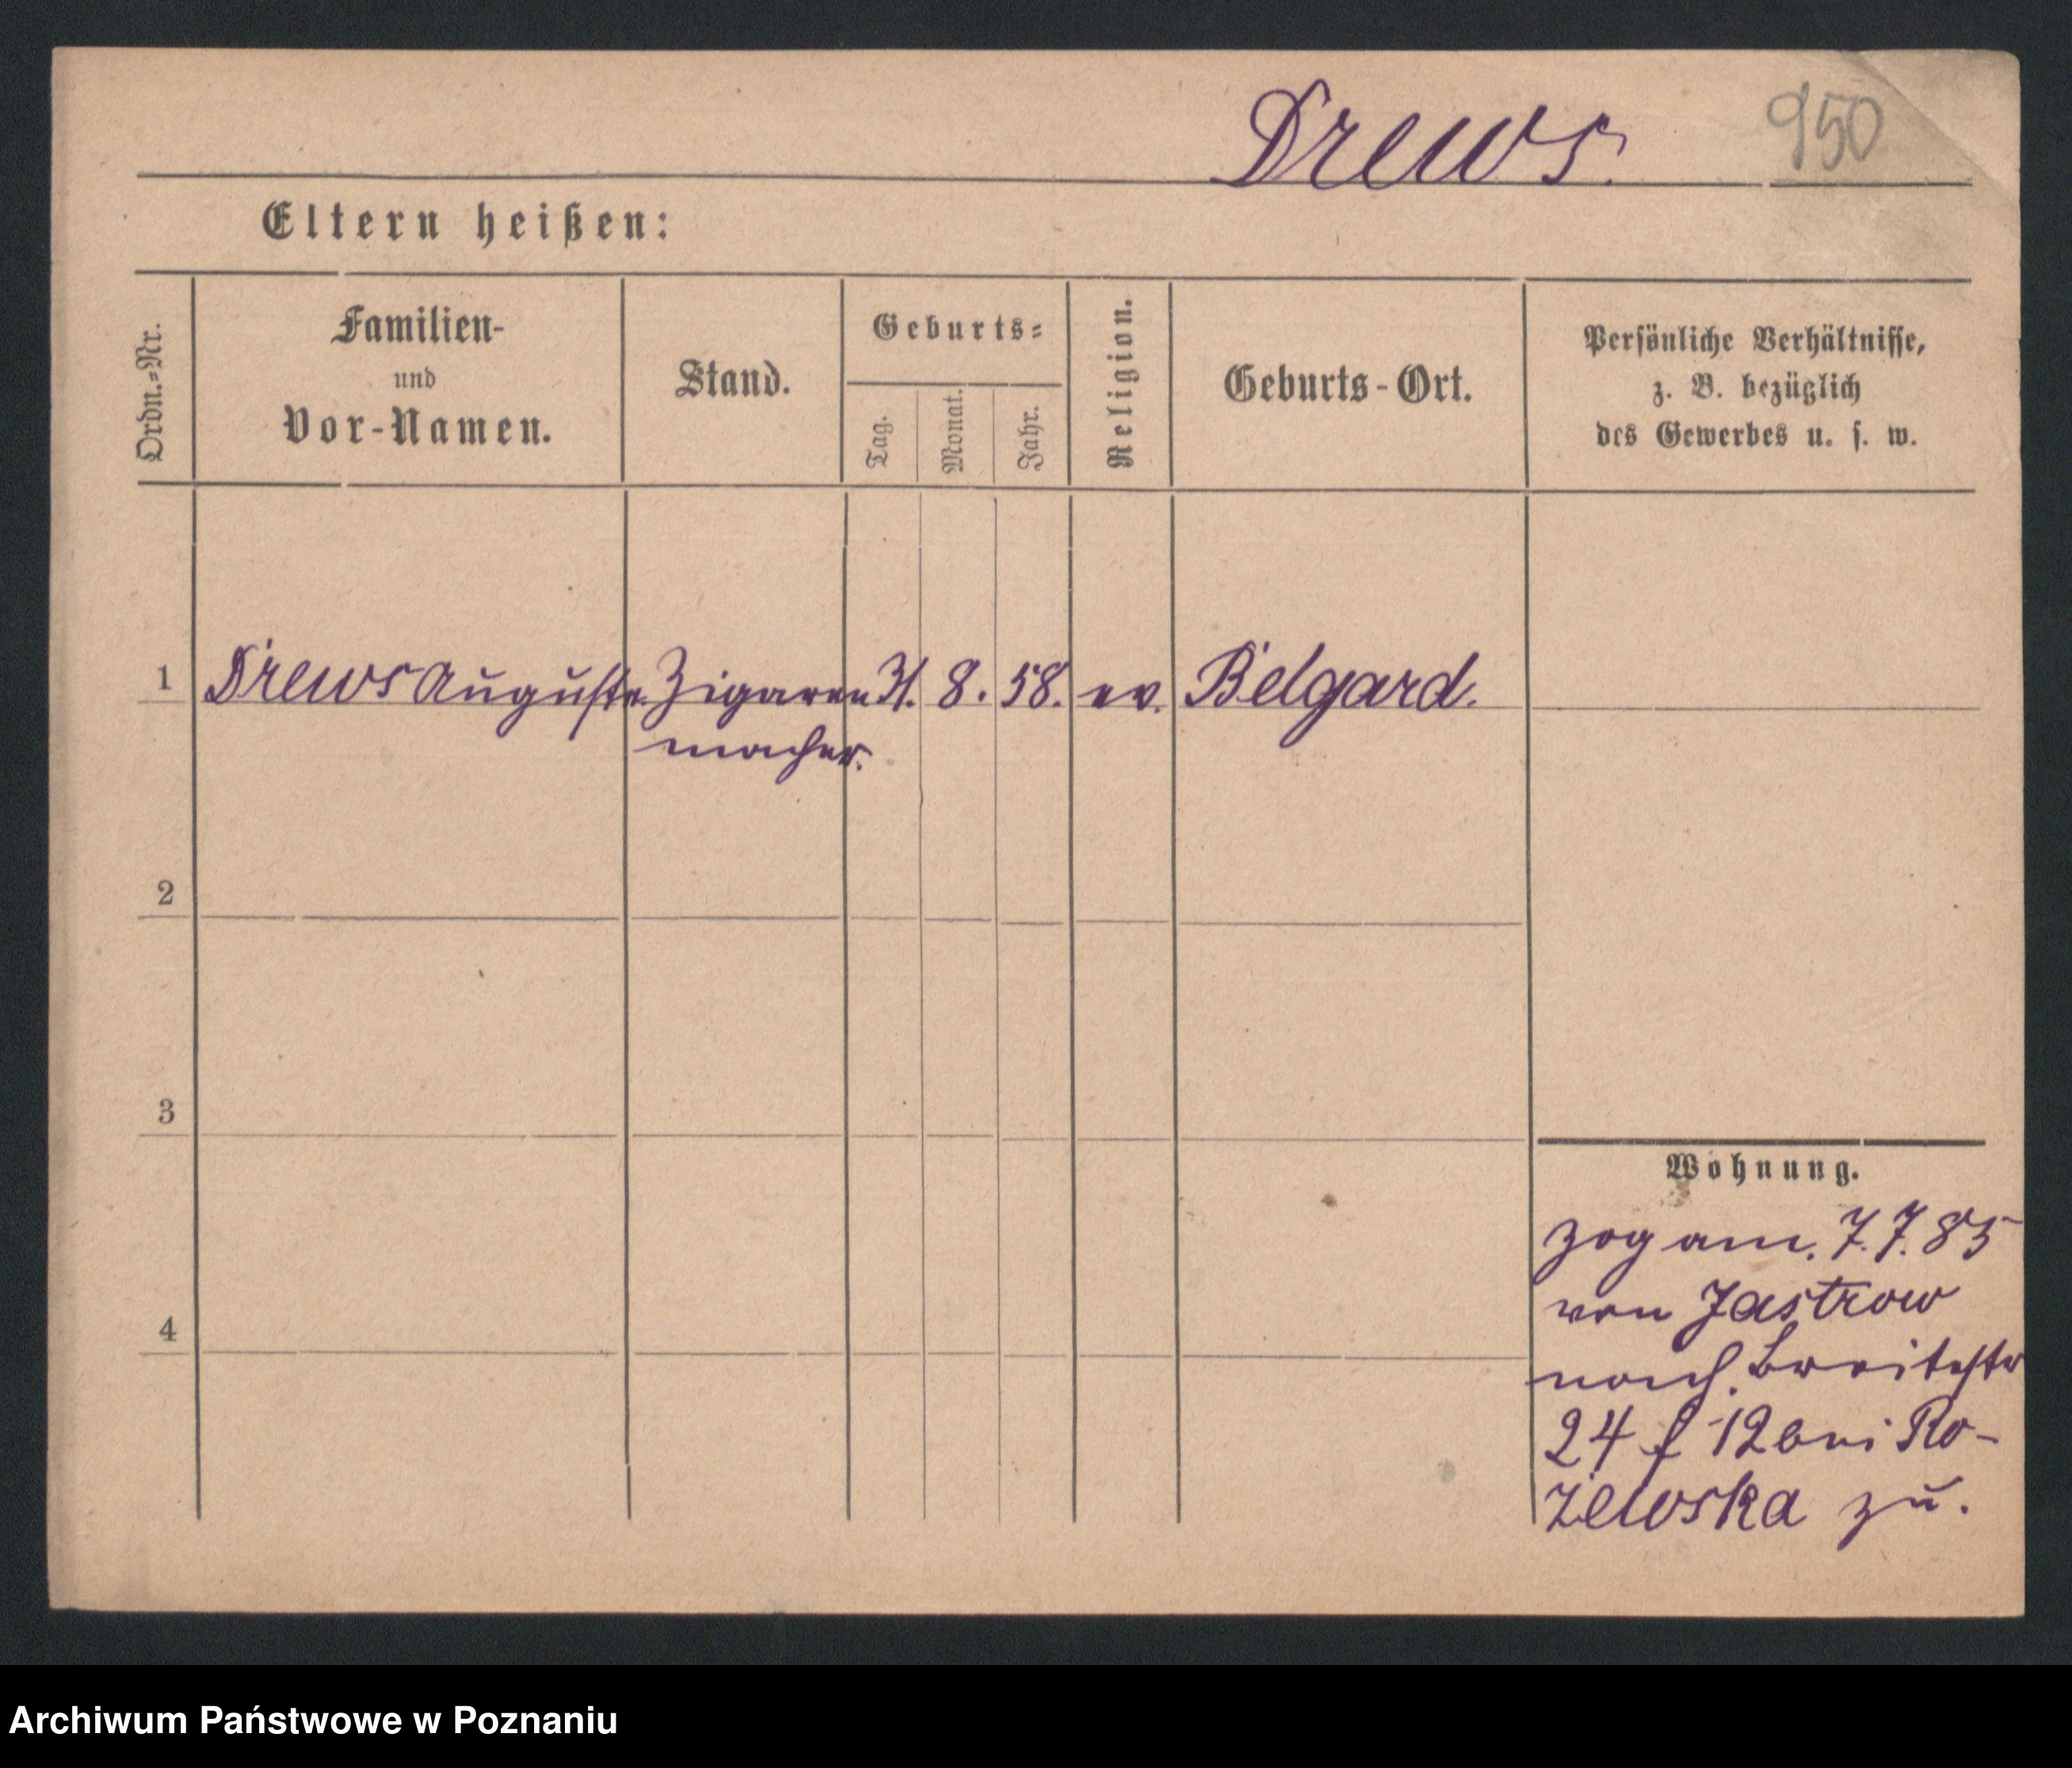 Drews. 950
Eltern heißen:
Ordn.=Nr.
Familien-
und
Vor-Namen.
Stand.
Geburts=
Tag.
Monat.
Jahr.
Religion.
Geburts-Ort.
Persönliche Verhältnisse,
z. B. bezüglich
des Gewerbes u. s. w.
1 Drews Auguste Zigarren 31. 8. 58. ev. Belgard.
macher.
2
3
4
Wohnung.
zog am. 7. 7. 85
von Jastrow
nach Breitestr
24 f 12 bei Ro-
zewska zu.
Archiwum Państwowe w Poznaniu